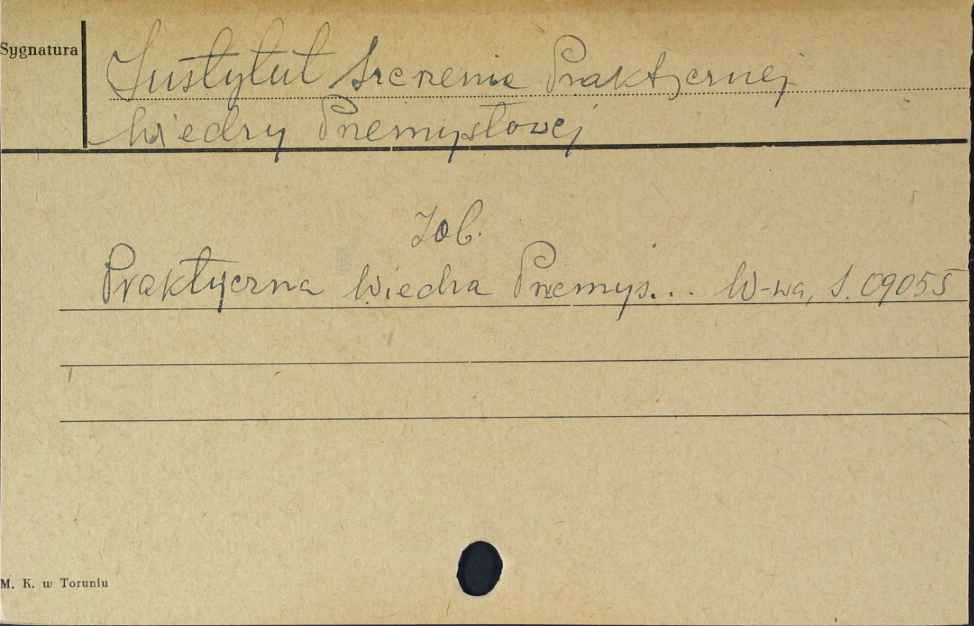 Sygnatura
Instytut Szerzenia Praktycznej
Wiedzy Przemysłowej
Zob.
Praktyczna Wiedza Przemys... W-wa, S. 09055
M. K. w Toruniu